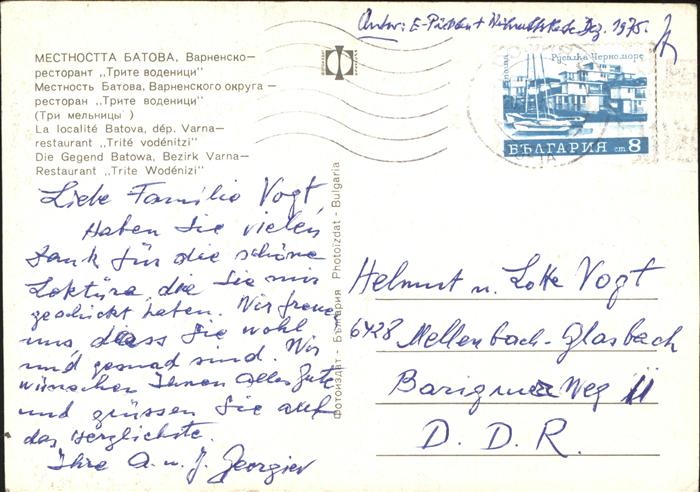 Antw: E-Päckben + Dez. 1975.
МЕСТНОСТТА БАТОВА, Варненско—
ресторант „Трите воденици"
Местность Батова, Варненского округа —
ресторан „Трите воденици"
(Три мельницы )
La localité Batova, dép. Varna—
restaurant „Trité vodénitzi"
Die Gegend Batowa, Bezirk Varna—
Restaurant „Trite Wodénizi"
Русалка Черноморе
поща
БЪЛГАРИЯ ст 8
Liebe Familie Vogt,
Haben Sie vielen
Dank für die schöne
Lektüre, die Sie mir
geschickt haben. Wir freuen
uns, dass Sie wohl
und gesund sind. Wir
wünschen Ihnen alles Gute
und grüssen Sie auf
das herzlichste.
Ihre A. u. J. Georgiev
Фотоиздат - България Photoizdat - Bulgaria
Helmut u. Lotte Vogt
6428 Mellenbach-Glasbach
Barigauer Weg 11
D. D. R.